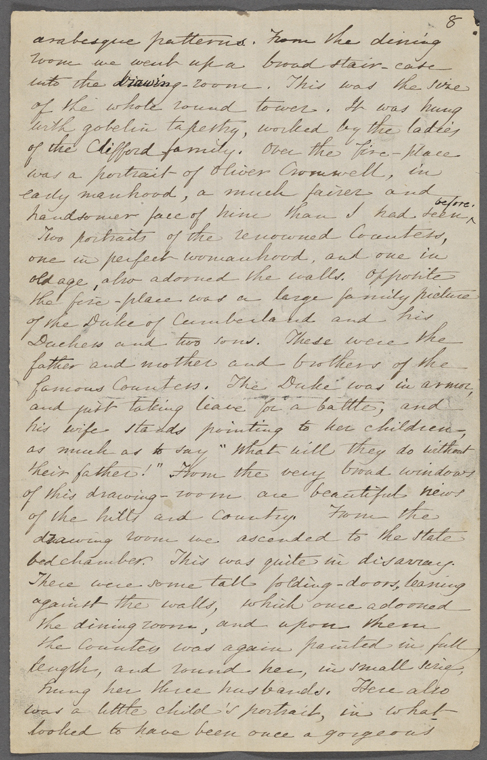 8
arabesque patterns. From the dining
room we went up a broad stair-case
into the drawing-room. This was the size
of the whole round tower. It was hung
with gobelin tapestry, worked by the ladies
of the Clifford family. Over the fire-place
was a portrait of Oliver Cromwell, in
early manhood, a much fairer and
handsomer face of him than I had seen before.
Two portraits of the renowned Countess,
one in perfect womanhood, and one in
old age, also adorned the walls. Opposite
the fire-place was a large family picture
of the Duke of Cumberland and his
Duchess and two sons. These were the
father and mother and brothers of the
famous Countess. The "Duke" was in armor,
and just taking leave for a battle, and
his wife stands pointing to her children,
as much as to say "What will they do without
their father!" From the very broad windows
of this drawing-room are beautiful views
of the hills and country. From the
drawing room we ascended to the state
bedchamber. This was quite in disarray.
There were some tall folding-doors, leaning
against the walls, which once adorned
the dining room, and upon them
the Countess was again painted in full
length, and round her, in small size,
hung her three husbands. Here also
was a little child's portrait, in what
looked to have been once a gorgeous